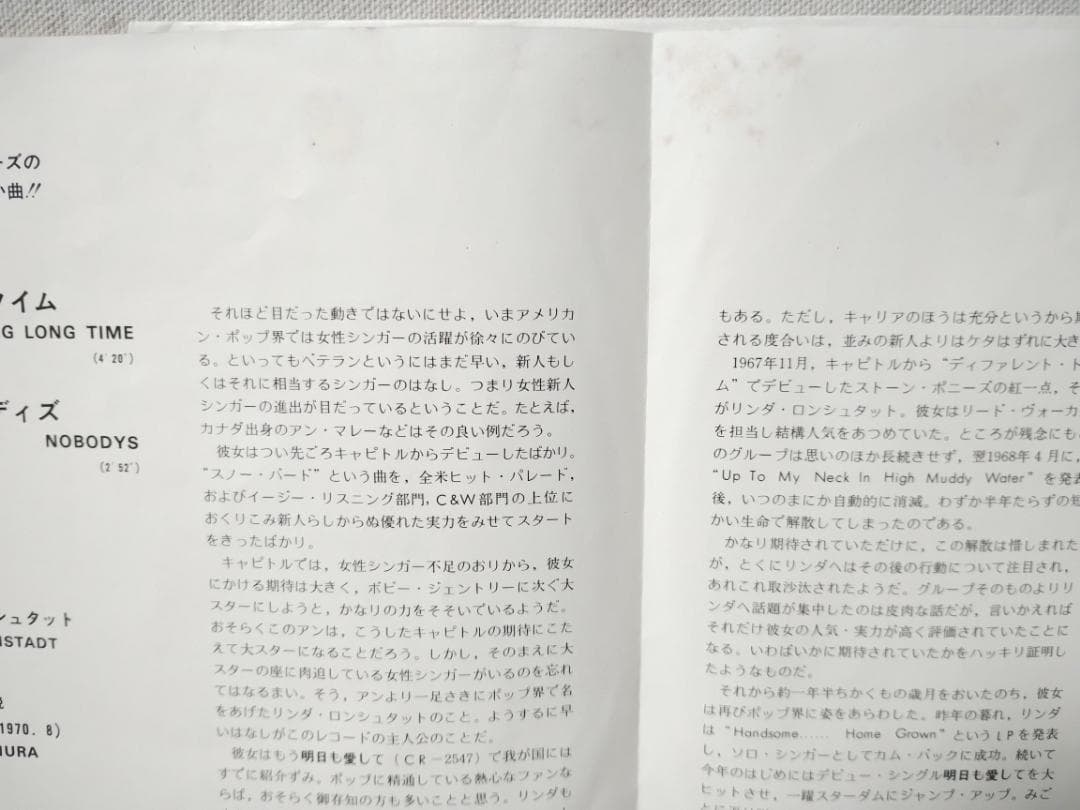 ーズの
い曲!!
タイム
G LONG TIME
(4′20″)
ディズ
NOBODYS
(2′52″)
シュタット
NSTADT
説
1970. 8)
URA
それほど目だった動きではないにせよ，いまアメリカ
ン・ポップ界では女性シンガーの活躍が徐々にのびてい
る。といってもベテランというにはまだ早い，新人もし
くはそれに相当するシンガーのはなし。つまり女性新人
シンガーの進出が目だっているということだ。たとえば，
カナダ出身のアン・マレーなどはその良い例だろう。
彼女はつい先ごろキャピトルからデビューしたばかり。
“スノー・バード”という曲を，全米ヒット・パレード，
およびイージー・リスニング部門，C&W部門の上位に
おくりこみ新人らしからぬ優れた実力をみせてスタート
をきったばかり。
キャピトルでは，女性シンガー不足のおりから，彼女
にかける期待は大きく，ボビー・ジェントリーに次ぐ大
スターにしようと，かなりの力をそそいでいるようだ。
おそらくこのアンは，こうしたキャピトルの期待にこた
えて大スターになることだろう。しかし，そのまえに大
スターの座に肉迫している女性シンガーがいるのを忘れ
てはなるまい。そう，アンより一足さきにポップ界で名
をあげたリンダ・ロンシュタットのこと。ようするに早
いはなしがこのレコードの主人公のことだ。
彼女はもう明日も愛して（CR−2547）で我が国には
すでに紹介ずみ。ポップに精通している熱心なファンな
らば，おそらく御存知の方も多いことと思う。リンダも
もある。ただし，キャリアのほうは充分というから期
される度合いは，並みの新人よりはケタはずれに大き
1967年11月，キャピトルから“ディファレント・ド
ム”でデビューしたストーン・ポニーズの紅一点，そ
がリンダ・ロンシュタット。彼女はリード・ヴォーカ
を担当し結構人気をあつめていた。ところが残念にも
のグループは思いのほか長続きせず，翌1968年4月に，
“Up To My Neck In High Muddy Water”を発表
後，いつのまにか自動的に消滅。わずか半年たらずの短
かい生命で解散してしまったのである。
かなり期待されていただけに，この解散は惜しまれた
が，とくにリンダへはその後の行動について注目され，
あれこれ取沙汰されたようだ。グループそのものよりリ
ンダへ話題が集中したのは皮肉な話だが，言いかえれば
それだけ彼女の人気・実力が高く評価されていたことに
なる。いわばいかに期待されていたかをハッキリ証明し
たようなものだ。
それから約一年半ちかくもの歳月をおいたのち，彼女
は再びポップ界に姿をあらわした。昨年の暮れ，リンダ
は“Handsome…… Home Grown”というLPを発表
し，ソロ・シンガーとしてカム・バックに成功。続いて
今年のはじめにはデビュー・シングル明日も愛してを大
ヒットさせ，一躍スターダムにジャンプ・アップ。みご